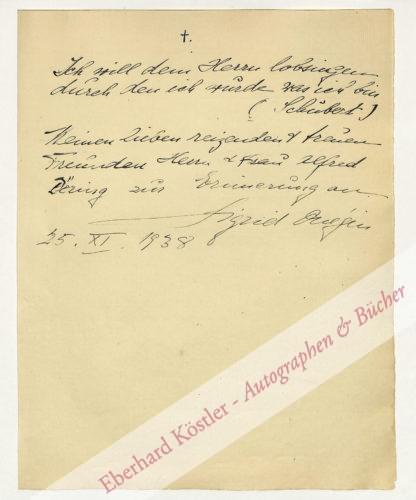 †.
Ich will dem Herrn lobsingen
durch den ich wurde was ich bin
(Schubert)
Meinen lieben reizenden & treuen
Freunden Herrn & Frau Alfred
Döring zur Erinnerung an
Sigrid Onégin
25. XI. 1938
Eberhard Köstler - Autographen & Bücher